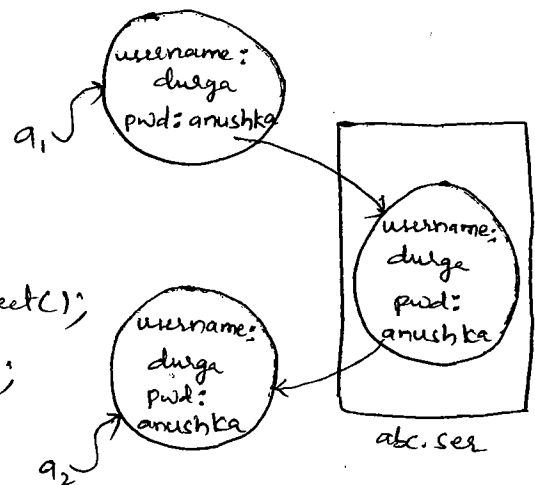 username:
durga
pwd: anushka
a1
username:
durga
pwd:
anushka
abc.ser
ect();
;
username:
durga
pwd:
anushka
a2